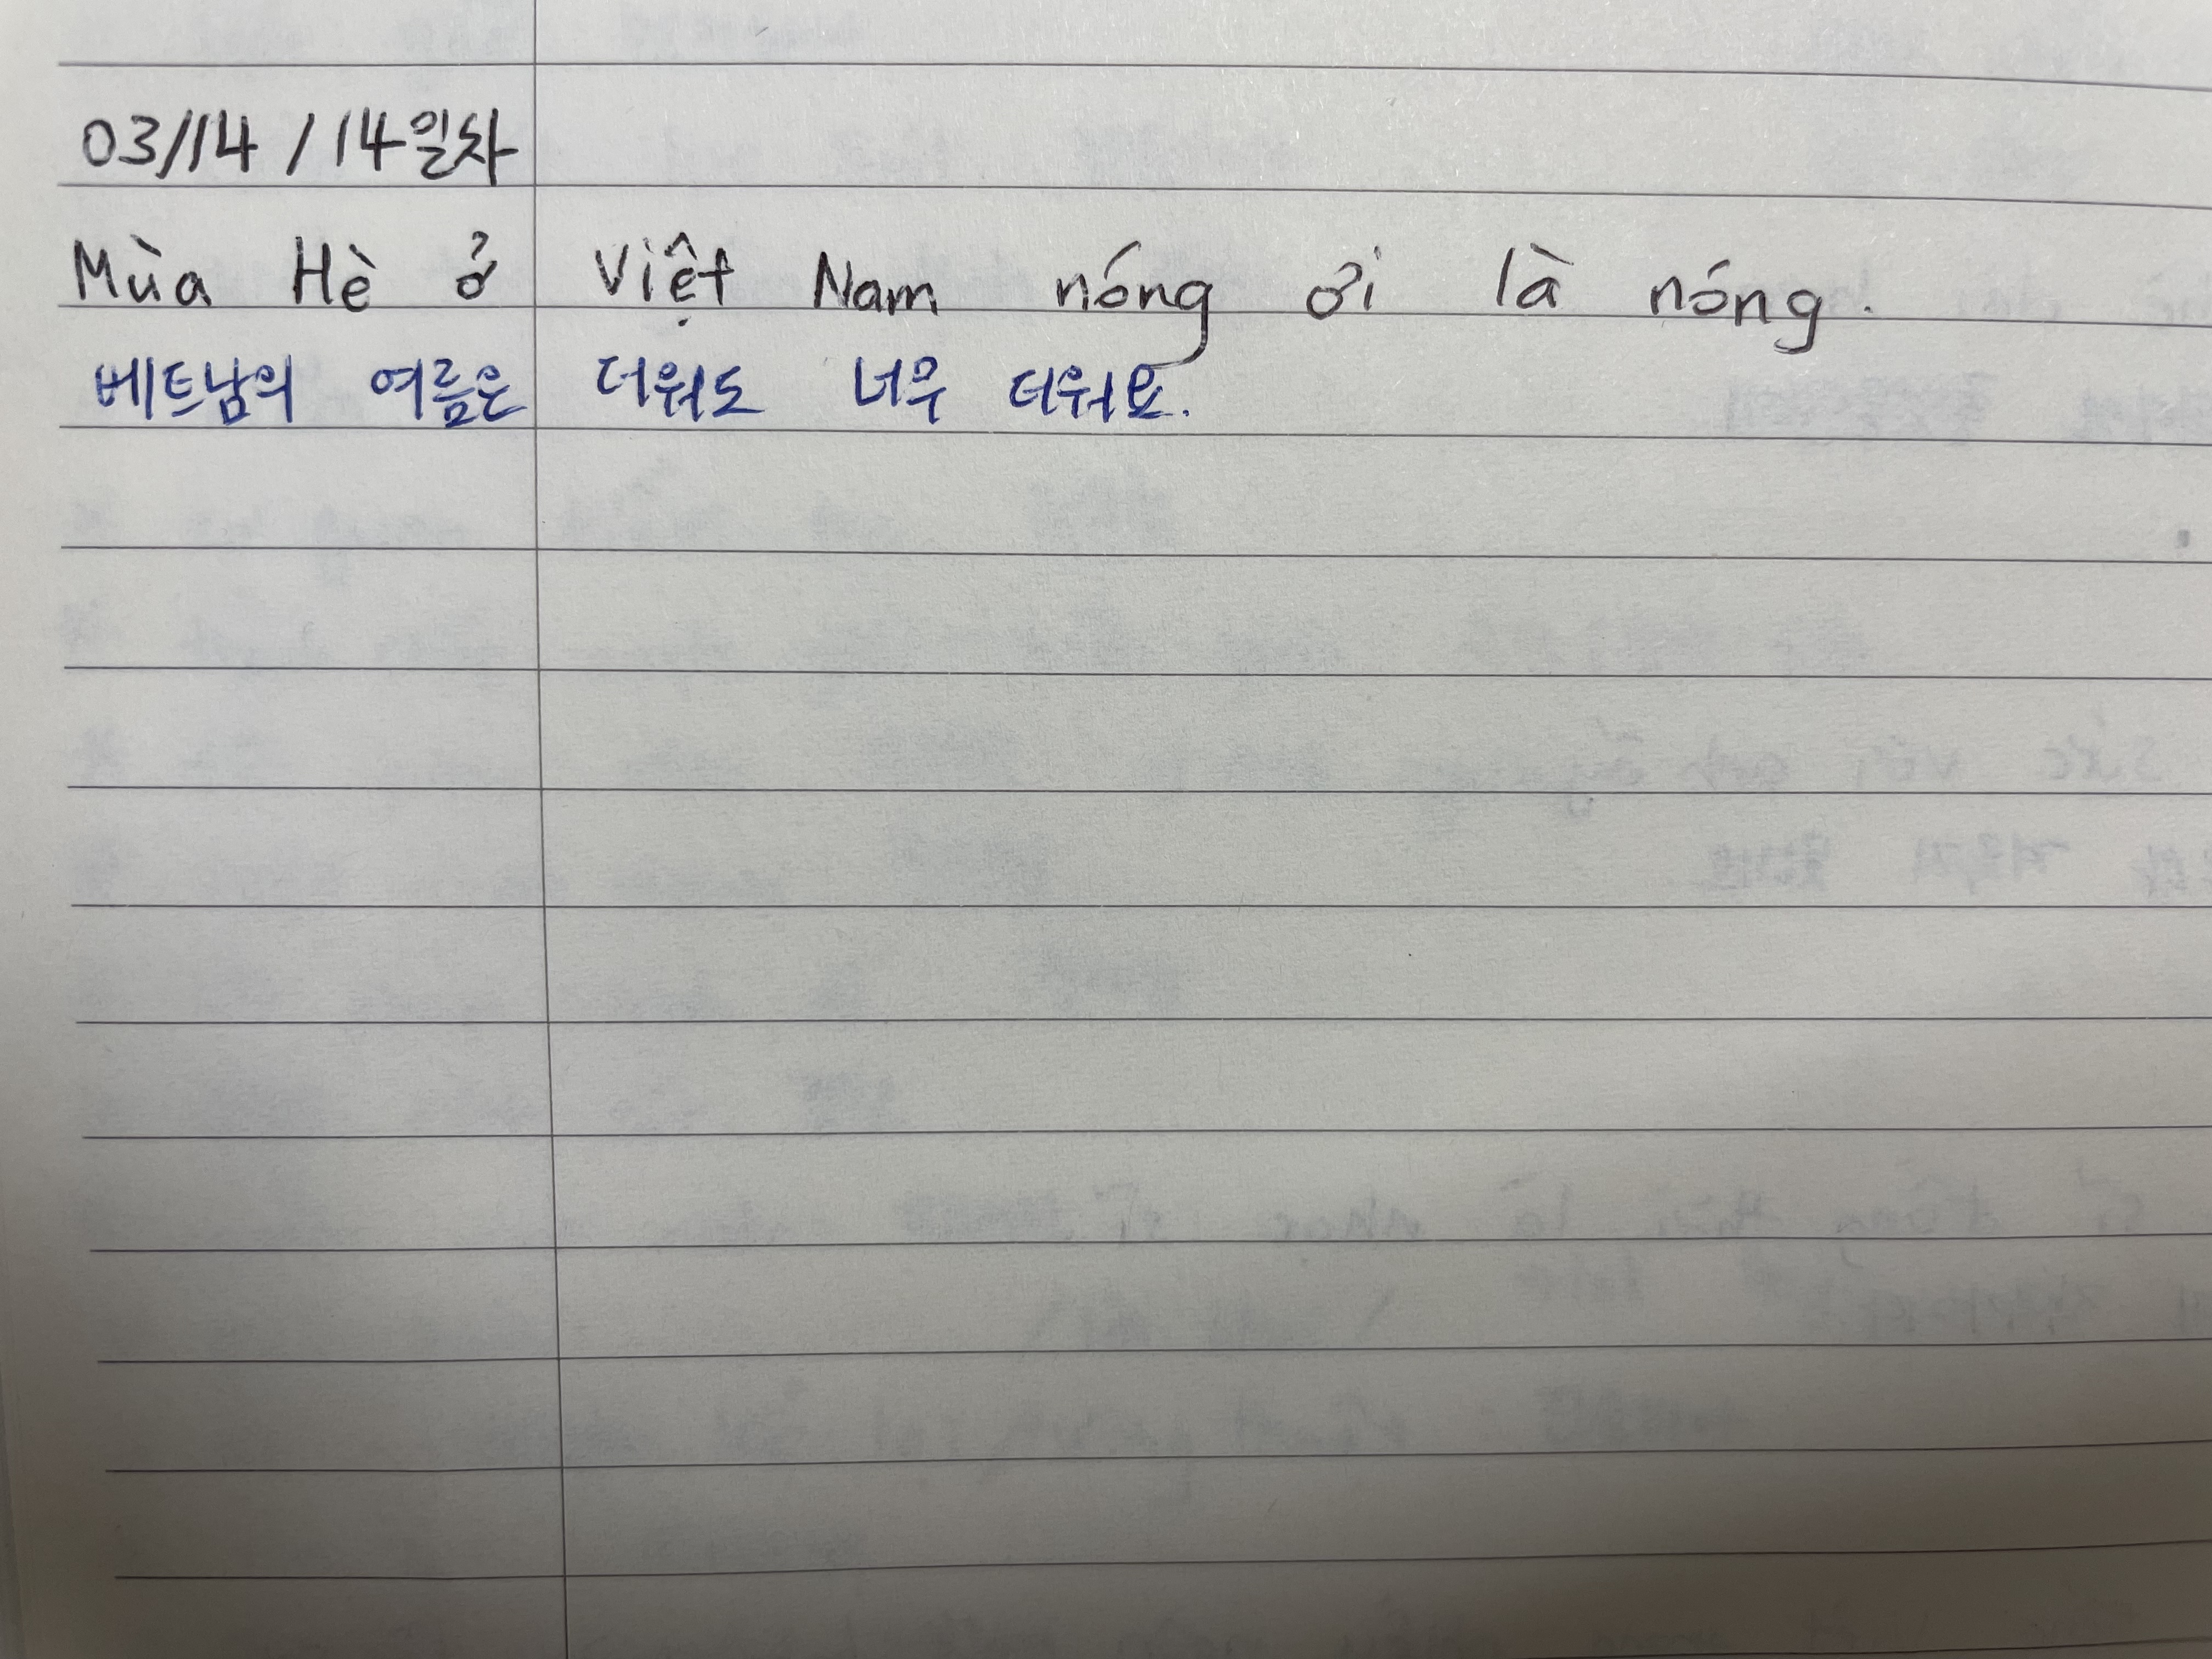 03/14 / 14일차
Mùa Hè ở Việt Nam nóng ơi là nóng.
베트남의 여름은 더워도 너무 더워요.